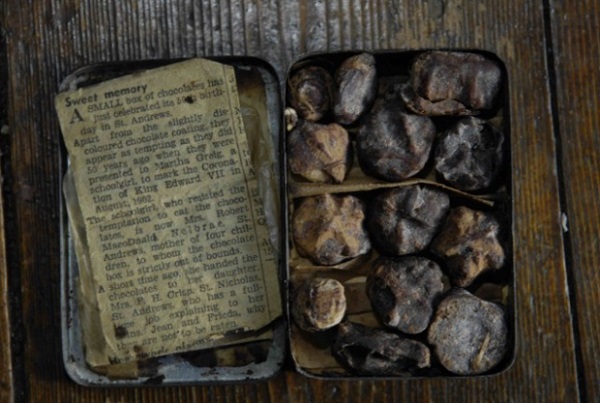 Sweet memory
A SMALL box of chocolates has
just celebrated its 50th birth-
day in St. Andrews.
Apart from the slightly dis-
coloured chocolate coating, they
appear as tempting as they did
50 years ago when they were
presented to Martha Greig, a
schoolgirl, to mark the Corona-
tion of King Edward VII. in
August, 1902.
The schoolgirl, who resisted the
temptation to eat the choco-
lates, is now Mrs. Robert
MacDonald, St.
Andrews, mother of four chil-
dren, to whom the chocolate
box is strictly out of bounds.
A short time ago she handed the
chocolates to her daughter,
Mrs. F. H. St. Nicholas,
St. Andrews, who has a full-
time job explaining to her
twins, Jean and Frieda, why
they are not to be eaten.